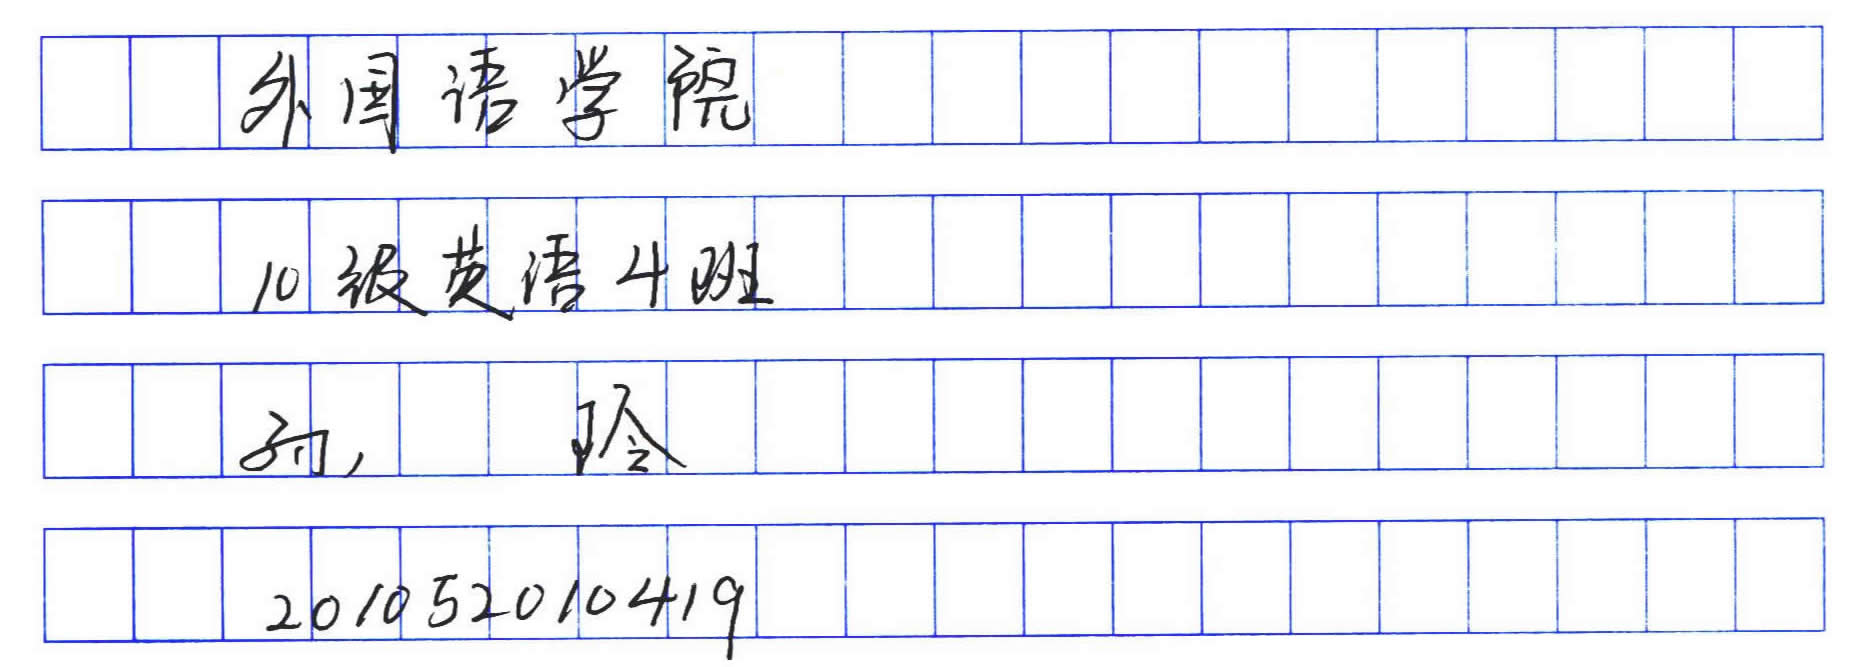 外国语学院
10级英语4班
孙 玲
201052010419